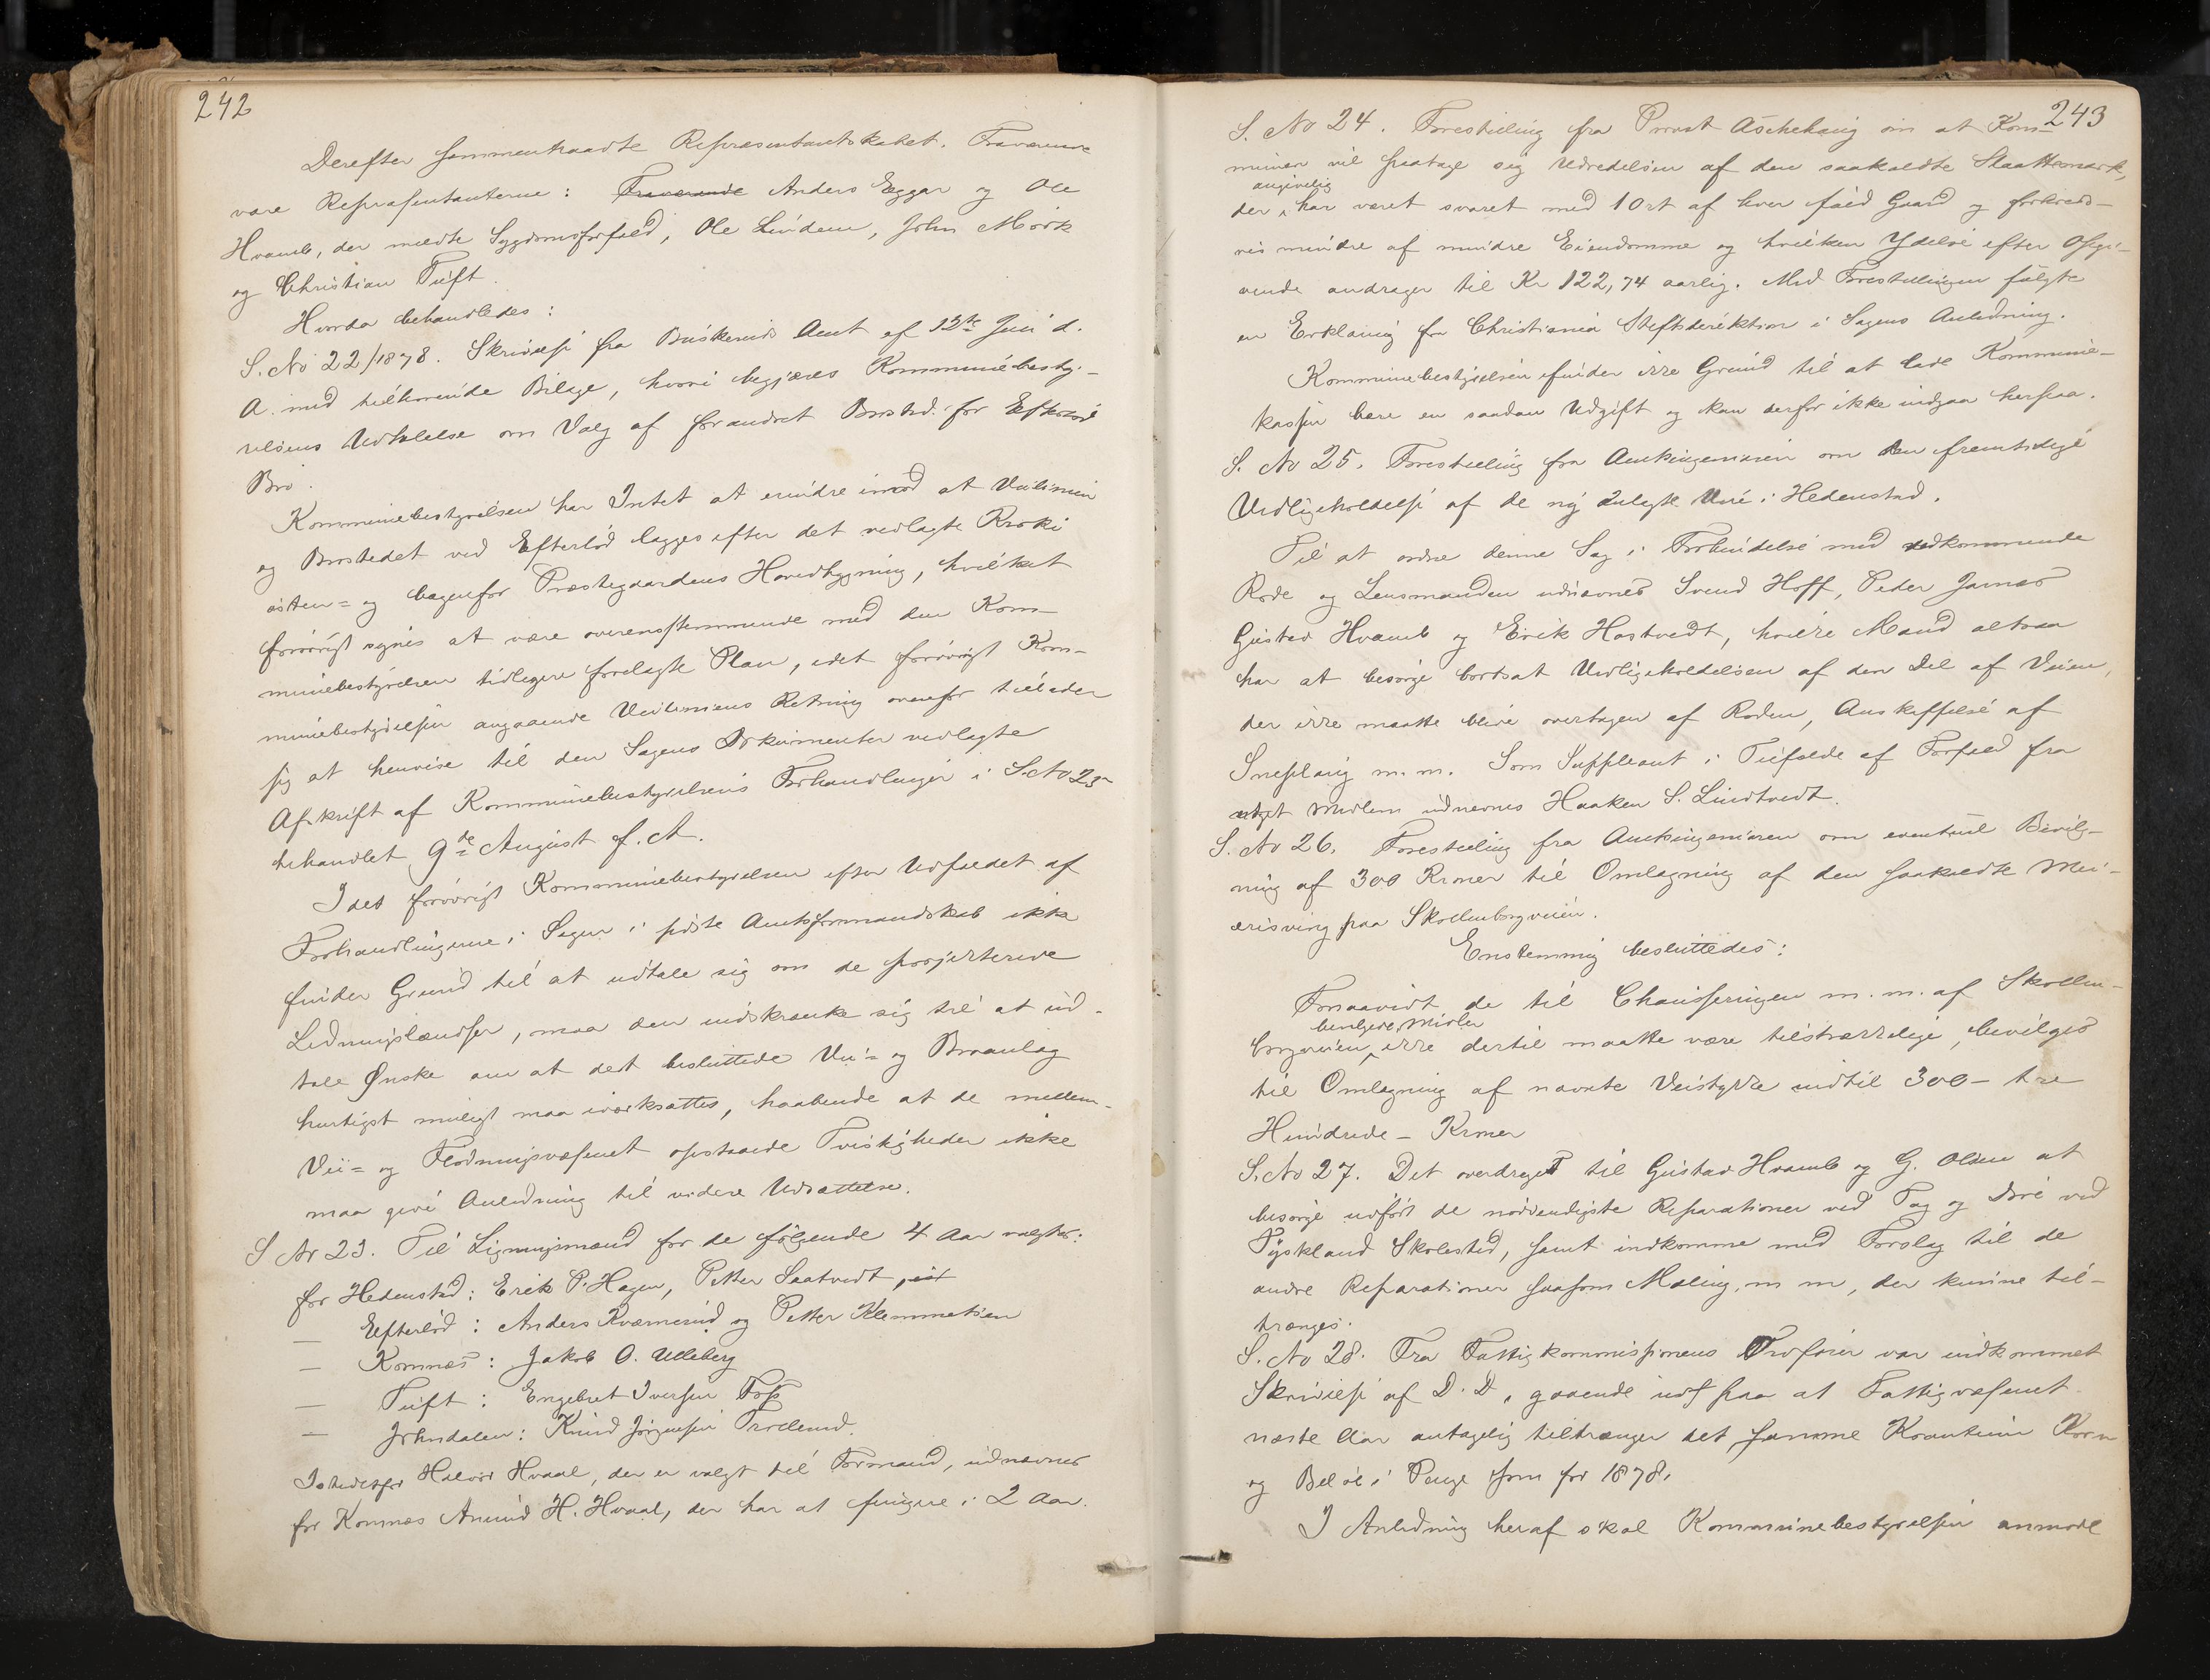 242
Derefter sammentraadte Repræsentantskabet. Fraværende
vare Repræsentanterne: Fraværende Anders Eggar og Ole
Hvamb, der meldte Sygdomsforfald, Ole Lindem, John Mörk
og Christian Tuft.
Hvorda behandledes:
S. No 22/1878. Skrivelse fra Buskeruds Amt af 12te Juni d.
A. med tilhörende Bilage, hvori begjæres Kommunebesty-
relsens Udtalelse om Valg af forandret Brosted for Efteløds
Bro.
Kommunebestyrelsen har Intet at erindre imod at Veilinien
og Brostedet ved Efterlöd lægges efter det vedlagte Kroki
østen- og bagenfor Præstegaardens Hovedbygning, hvilket
forövrigt synes at være overensstemmende med den Kom-
munebestyrelsen tidligere forelagte Plan, idet forövrigt Kom-
munebestyrelsen angaaende Veiliniens Retning ovenfor tillader
sig at henvise til den Sagens Dokumenter vedlagte
Afskrift af Kommunebestyrelsens Forhandlinger i S. No 23
behandlet 9de August f. A.
Idet forövrigt Kommunebestyrelsen efter Udfaldet af
Forhandlingerne i Sagen i sidste Amtsformandskab ikke
finder Grund til at udtale sig om de projekterede
Ledningslændser, maa den indskrænke sig til at ud-
tale Ønske om at det besluttede Vei- og Broanlæg
hurtigst muligt maa iværksættes, haabende at de mellem
Vei- og Flödningsvæsenet opstaaede Tvistigheder ikke
maa give Anledning til videre Udsættelse.
S Nr 23. Til Ligningsmænd for de fölgende 4 Aar valgtes:
for Hedenstad: Erik P. Hagen, Petter Saatvedt,
— Efterlöd: Anders Kværnerud og Petter Klemmetsen
— Komnæs: Jakob O. Ulleberg
— Tuft: Engebret Iversen Foss
— Johndalen: Knud Jörgensen Trollerud.
Istedetfor Halvor Hvaal, der er valgt til Formand, udnævnes
for Komnæs Amund H. Hvaal, der har at fungere i 2 Aar.
243
S. No 24. Forestilling fra Provst Aschehoug om at Kom-
munen vil paatage sig Udredelsen af den saakaldte Slaattemark,
angivelig
der har været svaret med 1 Ort af hver fuld Gaard og forholds-
vis mindre af mindre Eiendomme og hvilken Ydelse efter Opgi-
vende andrager til Kr 122,74 aarlig. Med Forestillingen fulgte
en Erklæring fra Christiania Stiftsdirektion i Sagens Anledning.
Kommunebestyrelsen finder ikke Grund til at lade Kommune-
kassen bære en saadan Udgift og kan derfor ikke indgaa herpaa.
S. No 25. Forestilling fra Amtsingeniøren om den fremtidige
Vedligeholdelse af de ny anlagte Veie i Hedenstad.
Til at ordne denne Sag i Forbindelse med vedkommende
Rode og Lensmanden udnævnes Svend Hoff, Peder Jarnæs
Gustav Hvamb og Erik Hostvedt, hvilke Mænd altsaa
har at besörge bortsat Vedligeholdelsen af den Del af Veien,
der ikke maatte blive overtagen af Roden, Anskaffelse af
Sneplaug m. m. Som Suppleant i Tilfælde af Forfald fra
Medlem udnævnes Haaken S. Lindtvedt.
S. No 26. Forestilling fra Amtsingeniøren om eventuel Bevilg-
ning af 300 Kroner til Omlægning af den saakaldte Mei-
erisving paa Skollenborgveien.
Enstemmig besluttedes:
Forsaavidt de til Chausseringen m. m. af Skollen-
benliggende Midler
borgveien ikke dertil maatte være tilstrækkelige, bevilges
til Omlægning af nævnte Veistykke indtil 300 - tre
Hundrede - Kroner
S. No 27. Det overdraget til Gustav Hvamb og G. Olsen at
besörge udfört de nödvendigste Reparationer ved Tag og Dör ved
Tyskland Skolested, samt indkomme med Forslag til de
andre Reparationer saasom Maling, m m, der kunne til-
trænges.
S. No 28. Fra Fattigkommissionens Ordförer var indkommet
Skrivelse af D. D., gaaende ud paa at Fattigvæsenet
næste Aar antagelig tiltrænger det samme Kvantum Korn
og Belöb i Penge som for 1878.
I Anledning heraf skal Kommunebestyrelsen anmode